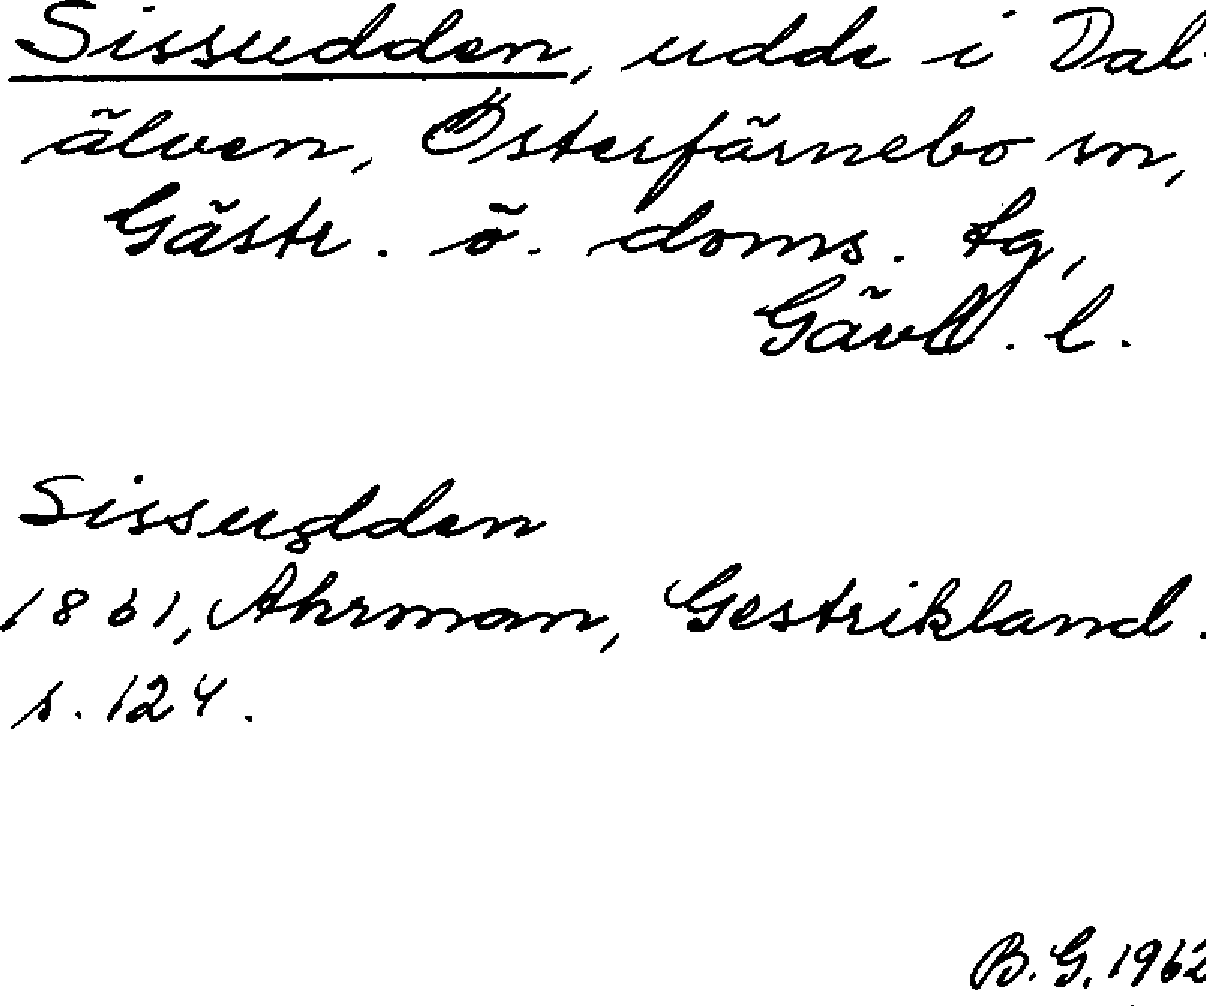 Sissudden, udde i Dal-
älven, Österfärnebo sn,
Gästr. ö. doms. tg,
Gävl. l.
Sissudden
1861, Ahrman, Gestrikland.
s. 124.
B. G. 1962